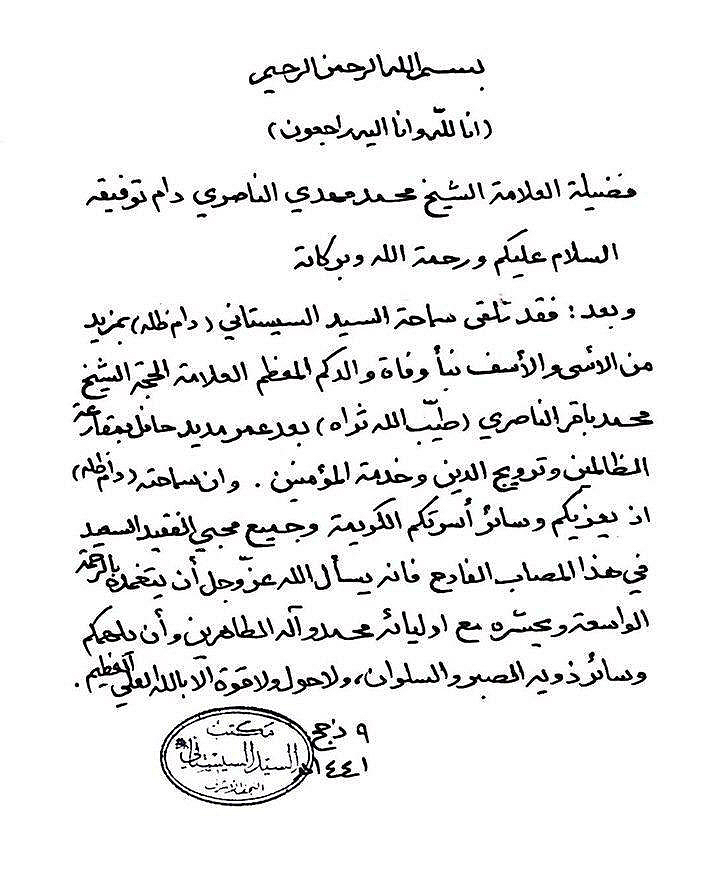 بسم الله الرحمن الرحيم
(انا لله وانا اليه راجعون)
فضيلة العلامة الشيخ محمد مهدي الناصري دام توفيقه
السلام عليكم ورحمة الله وبركاته
وبعد: فقد تلقى سماحة السيد السيستاني (دام ظله) بمزيد
من الأسى والأسف نبأ وفاة والدكم المعظم العلامة الحجة الشيخ
محمد باقر الناصري (طيّب الله ثراه) بعد عمر مديد حافل بمقارعة
الظالمين وترويج الدين وخدمة المؤمنين. وان سماحته (دام ظله)
اذ يعزيكم وسائر أسرتكم الكريمة وجميع محبي الفقيد السعيد
في هذا المصاب الفادح فانه يسأل الله عزّ وجل أن يتغمده بالرحمة
الواسعة ويحشره مع اوليائه محمد وآله الطاهرين وأن يلهمكم
وسائر ذويه الصبر والسلوان، ولا حول ولا قوة الّا بالله العلي العظيم.
٩ ذحج
١٤٤١هـ
مكتب
السيد السيستاني
النجف الاشرف